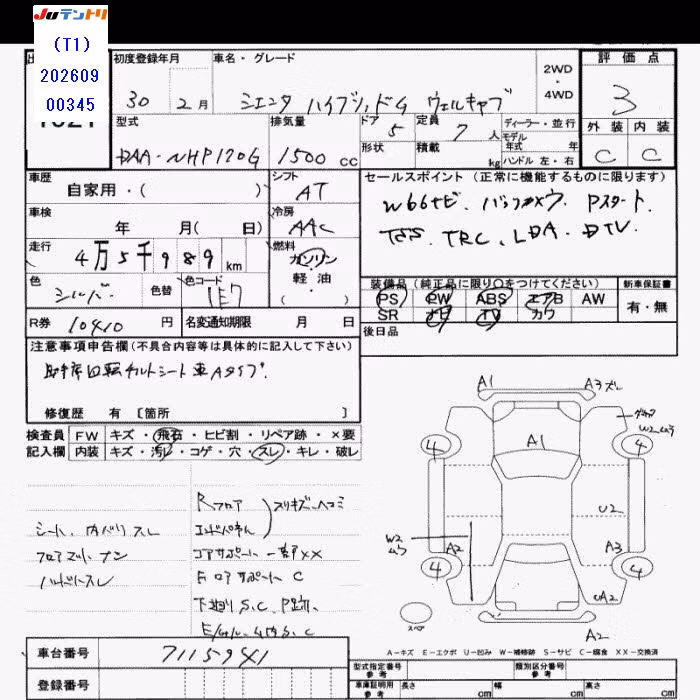 JUテントリ
(T1)
202609
00345
初度登録年月
車名・グレード
2WD
4WD
評価点
30 2月
シエンタ ハイブリッドG ウェルキャブ
3
型式
排気量
ドア
5
定員
7人
ディーラー・並行
モデル
年式 年
外装 内装
DAA-NHP170G
1500cc
形状
積載
kg
ハンドル 左・右
C C
車歴
シフト
セールスポイント(正常に機能するものに限ります)
自家用・( )
AT
車検
冷房
年 月( 日)
AAC
TSS. TRC. LDA. DTV.
走行
4万5千989km
燃料
ガソリン
軽油
装備品(純正品に限り○をつけてください)
新車保証書
色
シルバー
色替
色コード
1E7
PS PW ABS エアB AW
有・無
SR ナビ TV カワ
R券
10410円
名変通知期限
月 日
後日品
注意事項申告欄(不具合内容等は具体的に記入して下さい)
助手席回転チルトシート車Aタイプ.
修復歴 有 [箇所 ]
検査員
記入欄
FW
キズ・飛石・ヒビ割・リペア跡・×要
内装
キズ・汚レ・コゲ・穴・スレ・キレ・破レ
A1
A3
A1
W2
4
4
U2
W2
A2
A3
4
4
UA2
A2
Rフロア
エンドパネル
スリキズ・ヘコミ
シート、内バリスレ
フロアマットナシ
コアサポート一部XX
ハンドルスレ
FロアサポートC
下廻りS.C.
スペア
A-キズ E-エクボ U-凹み W-補修跡 S-サビ C-腐食 XX-交換済
車台番号
7115941
登録番号
型式指定番号
参考
類別区分番号
参考
車庫証明用
参考
長さ
cm
幅
cm
高さ
cm